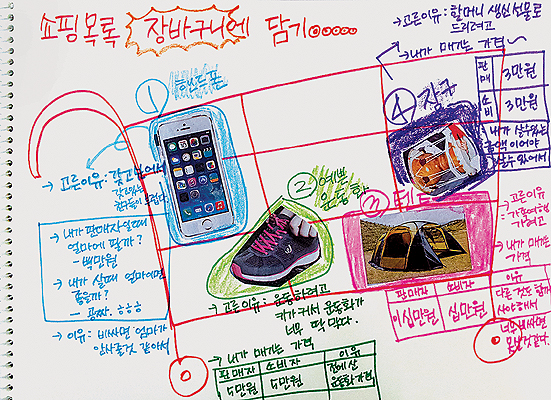 쇼핑목록 장바구니에 담기
① 핸드폰
→ 고른이유: 갖고싶어서
→ 내가 판매자일때
얼마에 팔까?
- 백만원
→ 내가 살때 얼마이면
좋을까?
- 공짜. ㅎㅎㅎ
→ 이유: 비싸면 엄마가
안사줄것 같아서
② 예쁜
운동화
→ 고른이유: 운동하려고
키가 커서 운동화가
너무 딱 맞다.
→ 내가 매기는 가격
판매자 소비자 이유
5만원 5만원 전에 산
운동화가격
③ 텐트
→ 고른이유
: 가족여행
가려고
→ 내가 매기는
가격
판매자 소비자 이유
이십만원 십만원 다른것도 함께
사야해서
너무 비싸면
안될것같다.
④ 장구
→ 고른이유: 할머니 생신선물로
드리려고
→ 내가 매기는 가격
판매 3만원
소비 3만원
: 내가 살수있는
금액이어야
살수있어서